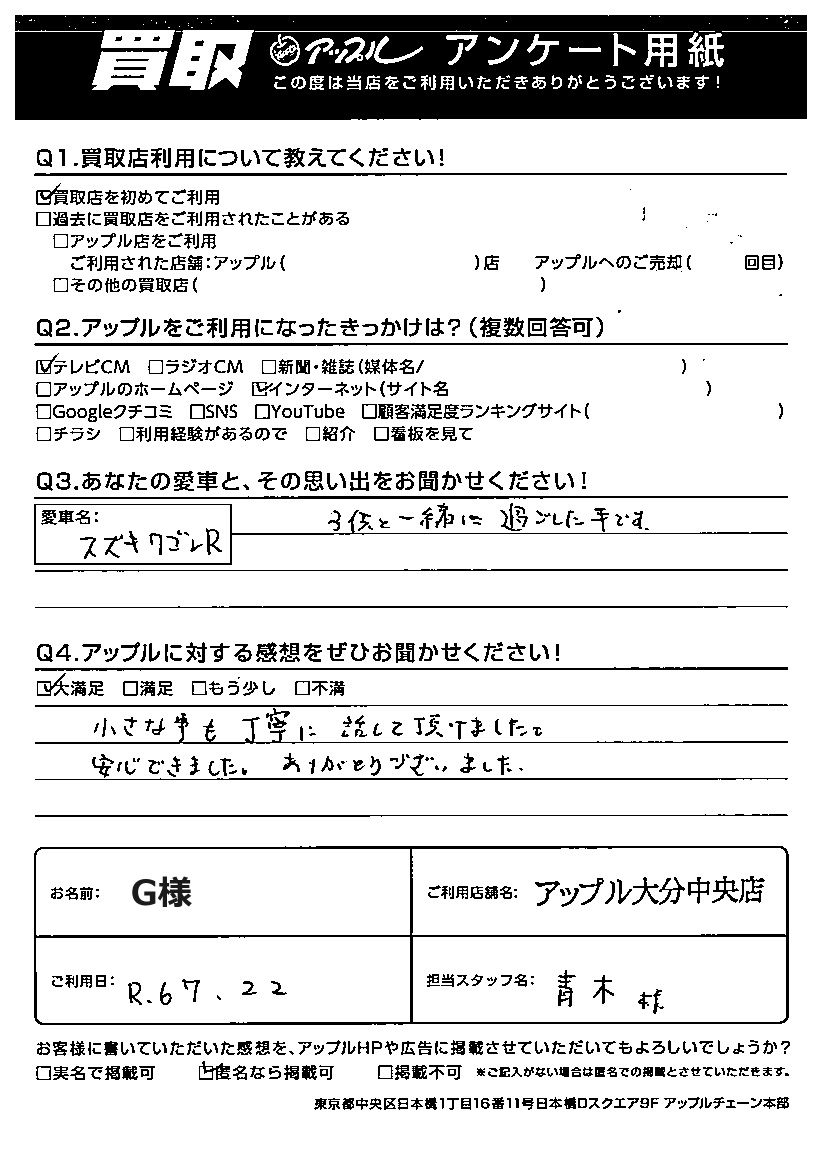 買取 アップル アンケート用紙
この度は当店をご利用いただきありがとうございます!
Q1.買取店利用について教えてください!
☑買取店を初めてご利用
□過去に買取店をご利用されたことがある
□アップル店をご利用
ご利用された店舗:アップル( )店 アップルへのご売却( 回目)
□その他の買取店( )
Q2.アップルをご利用になったきっかけは?(複数回答可)
☑テレビCM □ラジオCM □新聞・雑誌(媒体名/ )
□アップルのホームページ ☑インターネット(サイト名 )
□Googleクチコミ □SNS □YouTube □顧客満足度ランキングサイト( )
□チラシ □利用経験があるので □紹介 □看板を見て
Q3.あなたの愛車と、その思い出をお聞かせください!
愛車名:
スズキワゴンR
子供と一緒に過ごした車です
Q4.アップルに対する感想をぜひお聞かせください!
☑大満足 □満足 □もう少し □不満
小さな事も丁寧に話して頂けましたで
安心できました。ありがとうございました.
お名前: G様 ご利用店舗名: アップル大分中央店
ご利用日: R.6 7.22 担当スタッフ名: 青木 様
お客様に書いていただいた感想を、アップルHPや広告に掲載させていただいてもよろしいでしょうか?
□実名で掲載可 ☑匿名なら掲載可 □掲載不可 ※ご記入がない場合は匿名での掲載とさせていただきます。
東京都中央区日本橋1丁目16番11号日本橋Dスクエア9F アップルチェーン本部